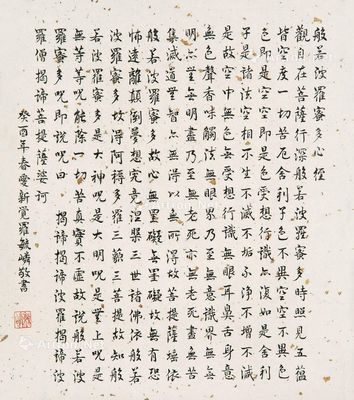 般若波羅蜜多心經
觀自在菩薩行深般若波羅蜜多時照見五蘊
皆空度一切苦厄舍利子色不異空空不異色
色即是空空即是色受想行識亦復如是舍利
子是諸法空相不生不滅不垢不淨不增不減
是故空中無色無受想行識無眼耳鼻舌身意
無色聲香味觸法無眼界乃至無意識界無無
明亦無無明盡乃至無老死亦無老死盡無苦
集滅道無智亦無得以無所得故菩提薩埵依
般若波羅蜜多故心無罣礙無罣礙故無有恐
怖遠離顛倒夢想究竟涅槃三世諸佛依般若
波羅蜜多故得阿耨多羅三藐三菩提故知般
若波羅蜜多是大神呪是大明呪是無上呪是
無等等呪能除一切苦真實不虛故說般若波
羅蜜多呪即說呪曰 揭諦揭諦波羅揭諦波
羅僧揭諦菩提薩婆訶
癸酉年春愛新覺羅毓嶙敬書